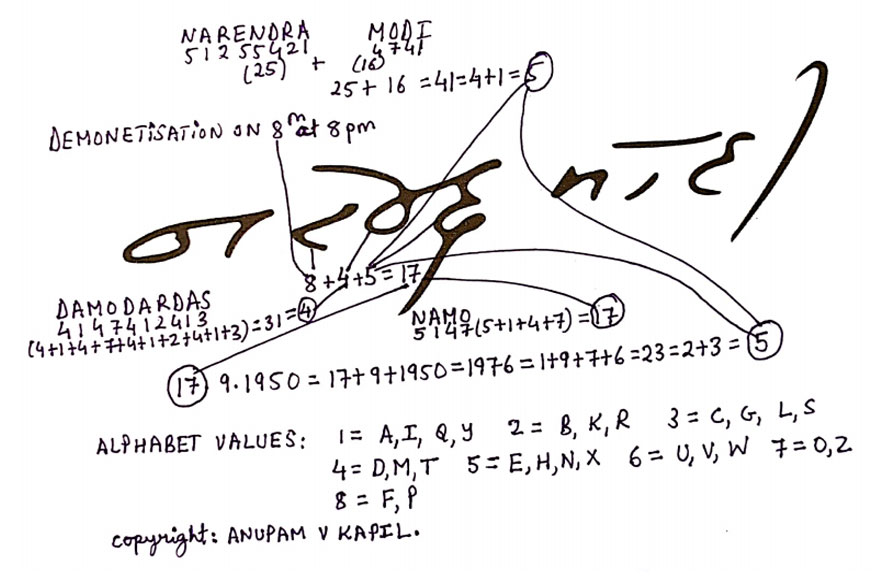 NARENDRA MODI
51255421 4741
(25) + (16)
25 + 16 = 41 = 4+1 = 5
DEMONETISATION ON 8th at 8 pm
8 + 4 + 5 = 17
DAMODARDAS
4147412413
(4+1+4+7+4+1+2+4+1+3) = 31 = 4
NAMO
5147 (5+1+4+7) = 17
17 9.1950 = 17+9+1950 = 1976 = 1+9+7+6 = 23 = 2+3 = 5
ALPHABET VALUES: 1 = A, I, Q, Y 2 = B, K, R 3 = C, G, L, S
4 = D, M, T 5 = E, H, N, X 6 = U, V, W 7 = O, Z
8 = F, P
copyright: ANUPAM V KAPIL.